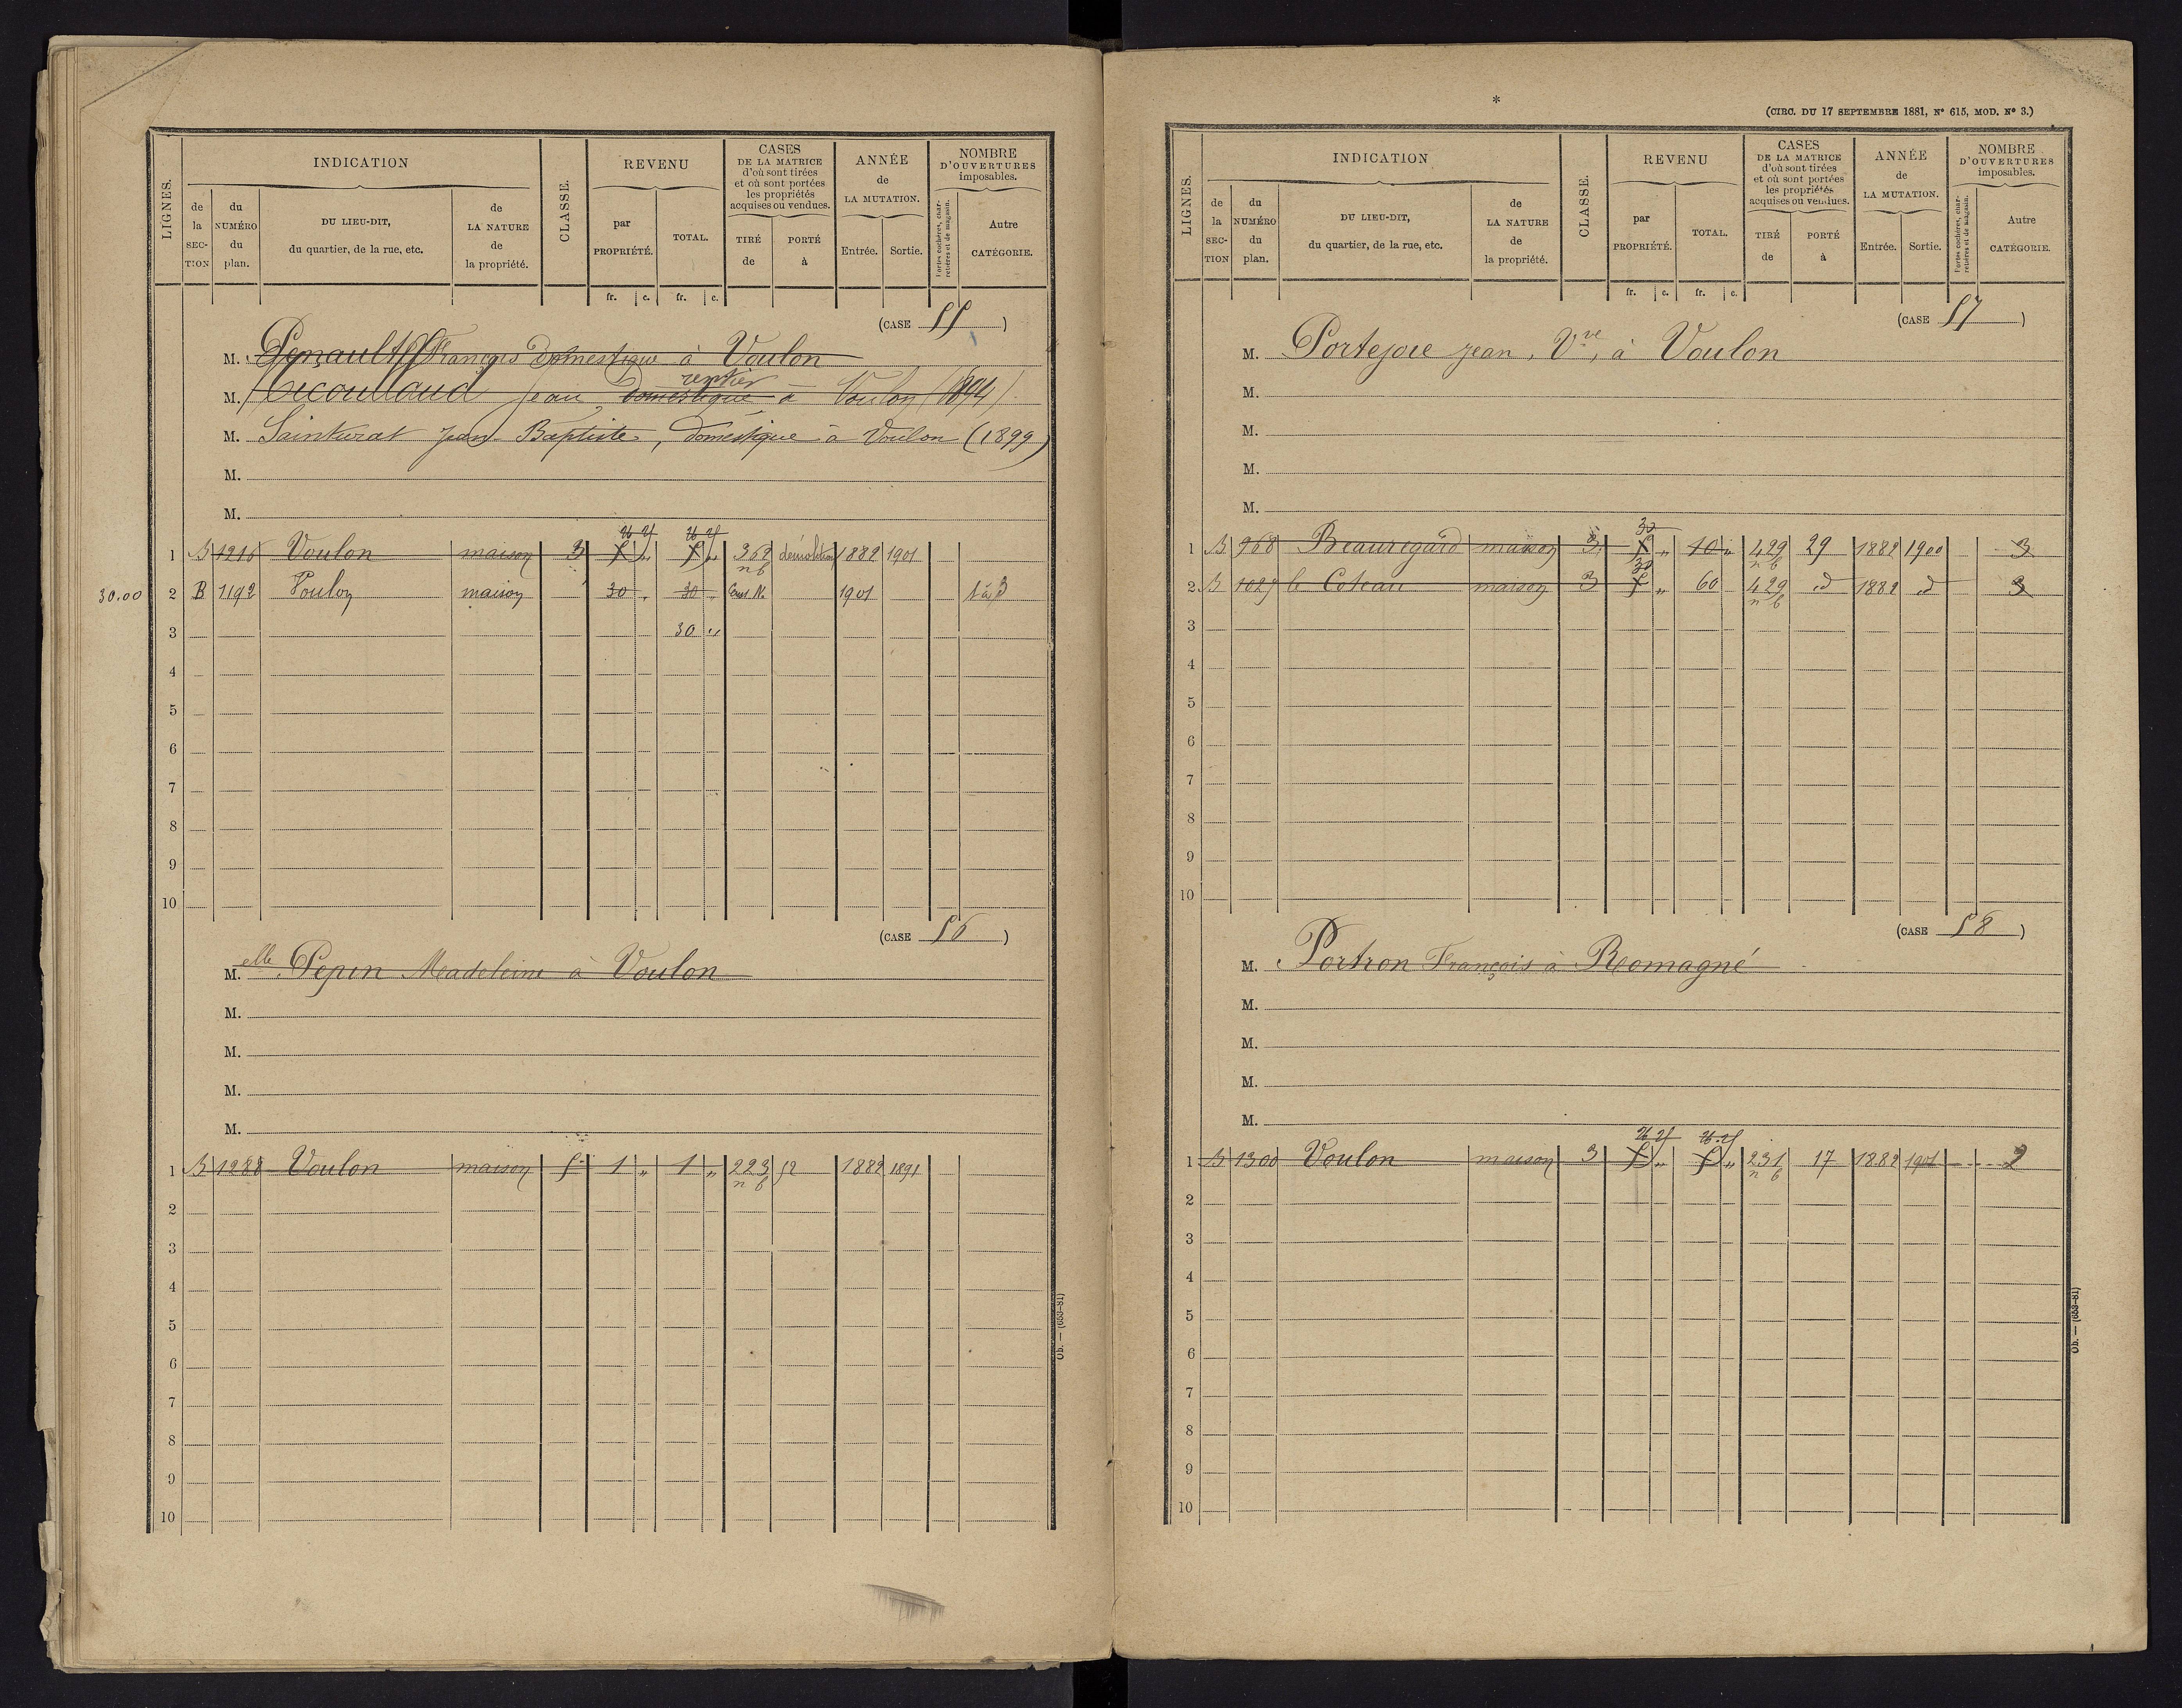 LIGNES.
INDICATION
de la SECTION
du NUMÉRO du plan.
DU LIEU-DIT, du quartier, de la rue, etc.
de LA NATURE de la propriété.
CLASSE.
REVENU
par PROPRIÉTÉ.
TOTAL.
fr. c. fr. c.
CASES DE LA MATRICE d'où sont tirées et où sont portées les propriétés acquises ou vendues.
TIRÉ de
PORTÉ à
ANNÉE de LA MUTATION.
Entrée. Sortie.
NOMBRE D'OUVERTURES imposables.
Portes cochères, charretières et de magasin.
Autre CATÉGORIE.
(CASE 55)
M. François Domestique à Voulon
M. Jean Domestique rentier à Voulon (1894)
M. Sainturat Jean-Baptiste, domestique à Voulon (1899)
M.
M.
1 B 1216 Voulon maison 3 5 „ 5 „ 362 n b démolition 1882 1901
30.00 2 B 1192 Voulon maison 30 „ 30 „ Const. N. 1901
3 30 „
4
5
6
7
8
9
10
(CASE 56)
M.elle Pepin Madeleine à Voulon
M.
M.
M.
M.
1 B 1288 Voulon maison 5 1 „ 1 „ 223 n b 52 1882 1891
2
3
4
5
6
7
8
9
10
Ob. — (653-81)
*
(CIRC. DU 17 SEPTEMBRE 1881, N° 615, MOD. N° 3.)
LIGNES.
INDICATION
de la SECTION
du NUMÉRO du plan.
DU LIEU-DIT, du quartier, de la rue, etc.
de LA NATURE de la propriété.
CLASSE.
REVENU
par PROPRIÉTÉ.
TOTAL.
fr. c. fr. c.
CASES DE LA MATRICE d'où sont tirées et où sont portées les propriétés acquises ou vendues.
TIRÉ de
PORTÉ à
ANNÉE de LA MUTATION.
Entrée. Sortie.
NOMBRE D'OUVERTURES imposables.
Portes cochères, charretières et de magasin.
Autre CATÉGORIE.
(CASE 57)
M. Portejoie Jean, Vve, à Voulon
M.
M.
M.
M.
30
1 B 968 Beauregard maison 3 5 „ 10 „ 429 n b 29 1882 1900 3
30
2 B 1027 le Coteau maison 3 5 „ 60 429 n b d 1882 d 3
3
4
5
6
7
8
9
10
(CASE 58)
M. Portron François à Romagné
M.
M.
M.
M.
1 B 1300 Voulon maison 3 5 „ 5 „ 231 n b 17 1882 1901 2
2
3
4
5
6
7
8
9
10
Ob. — (653-81)